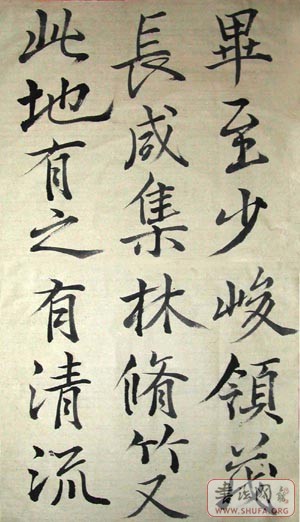 畢至少峻領茂
長咸集林脩竹又
此地有之有清流
WWW.SHUFA.ORG